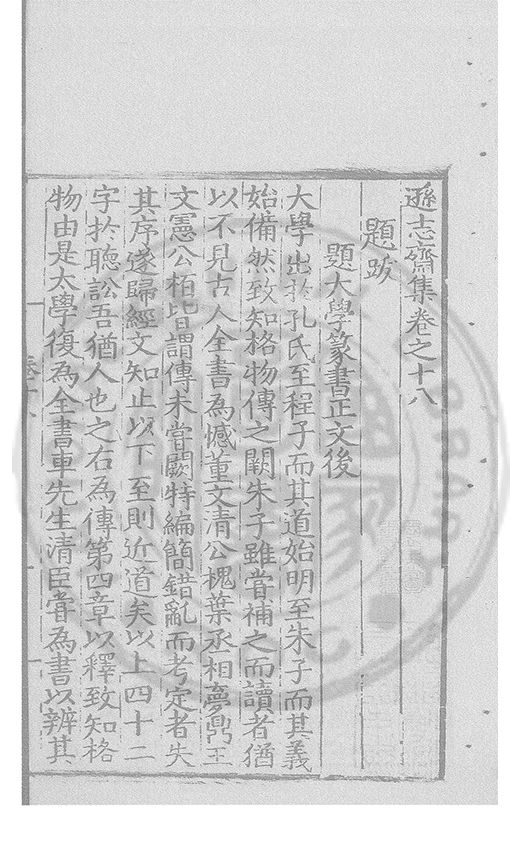 遜志齋集卷之十八
題跋
題大學篆書正文後
大學出於孔氏至程子而其道始明至朱子而其義
始備然致知格物傳之闕朱子雖嘗補之而讀者猶
以不見古人全書為憾董文清公槐葉丞相夢鼎王
文憲公栢皆謂傳未嘗闕特編簡錯亂而考定者失
其序遂歸經文知止以下至則近道矣以上四十二
字扵聽訟吾猶人也之右為傳第四章以釋致知格
物由是太學復為全書車先生清臣嘗為書以辨其